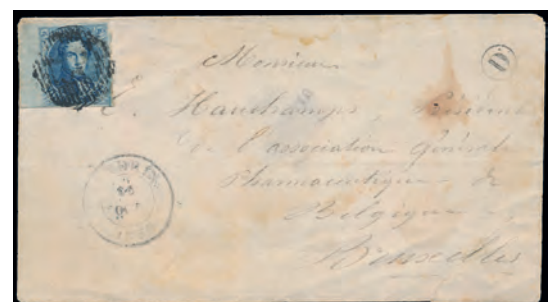 Monsieur
D
E. Hauchamps, Président
de l'association générale
Pharmaceutique de
Belgique
Bruxelles